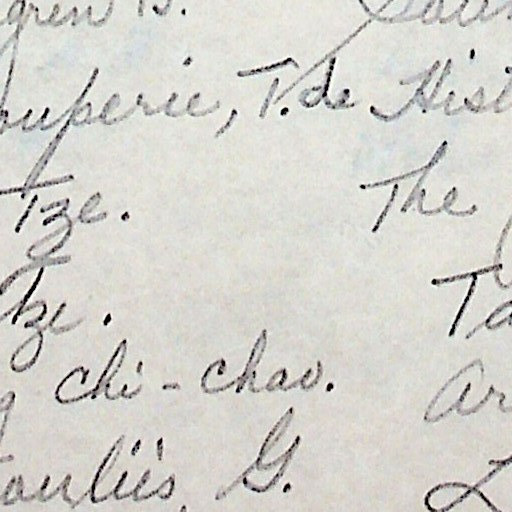 gren B.
ouperie, T. de Hist
Tze. The
Tze. Ta
g chi-chao. Ar
oulié's, G. L